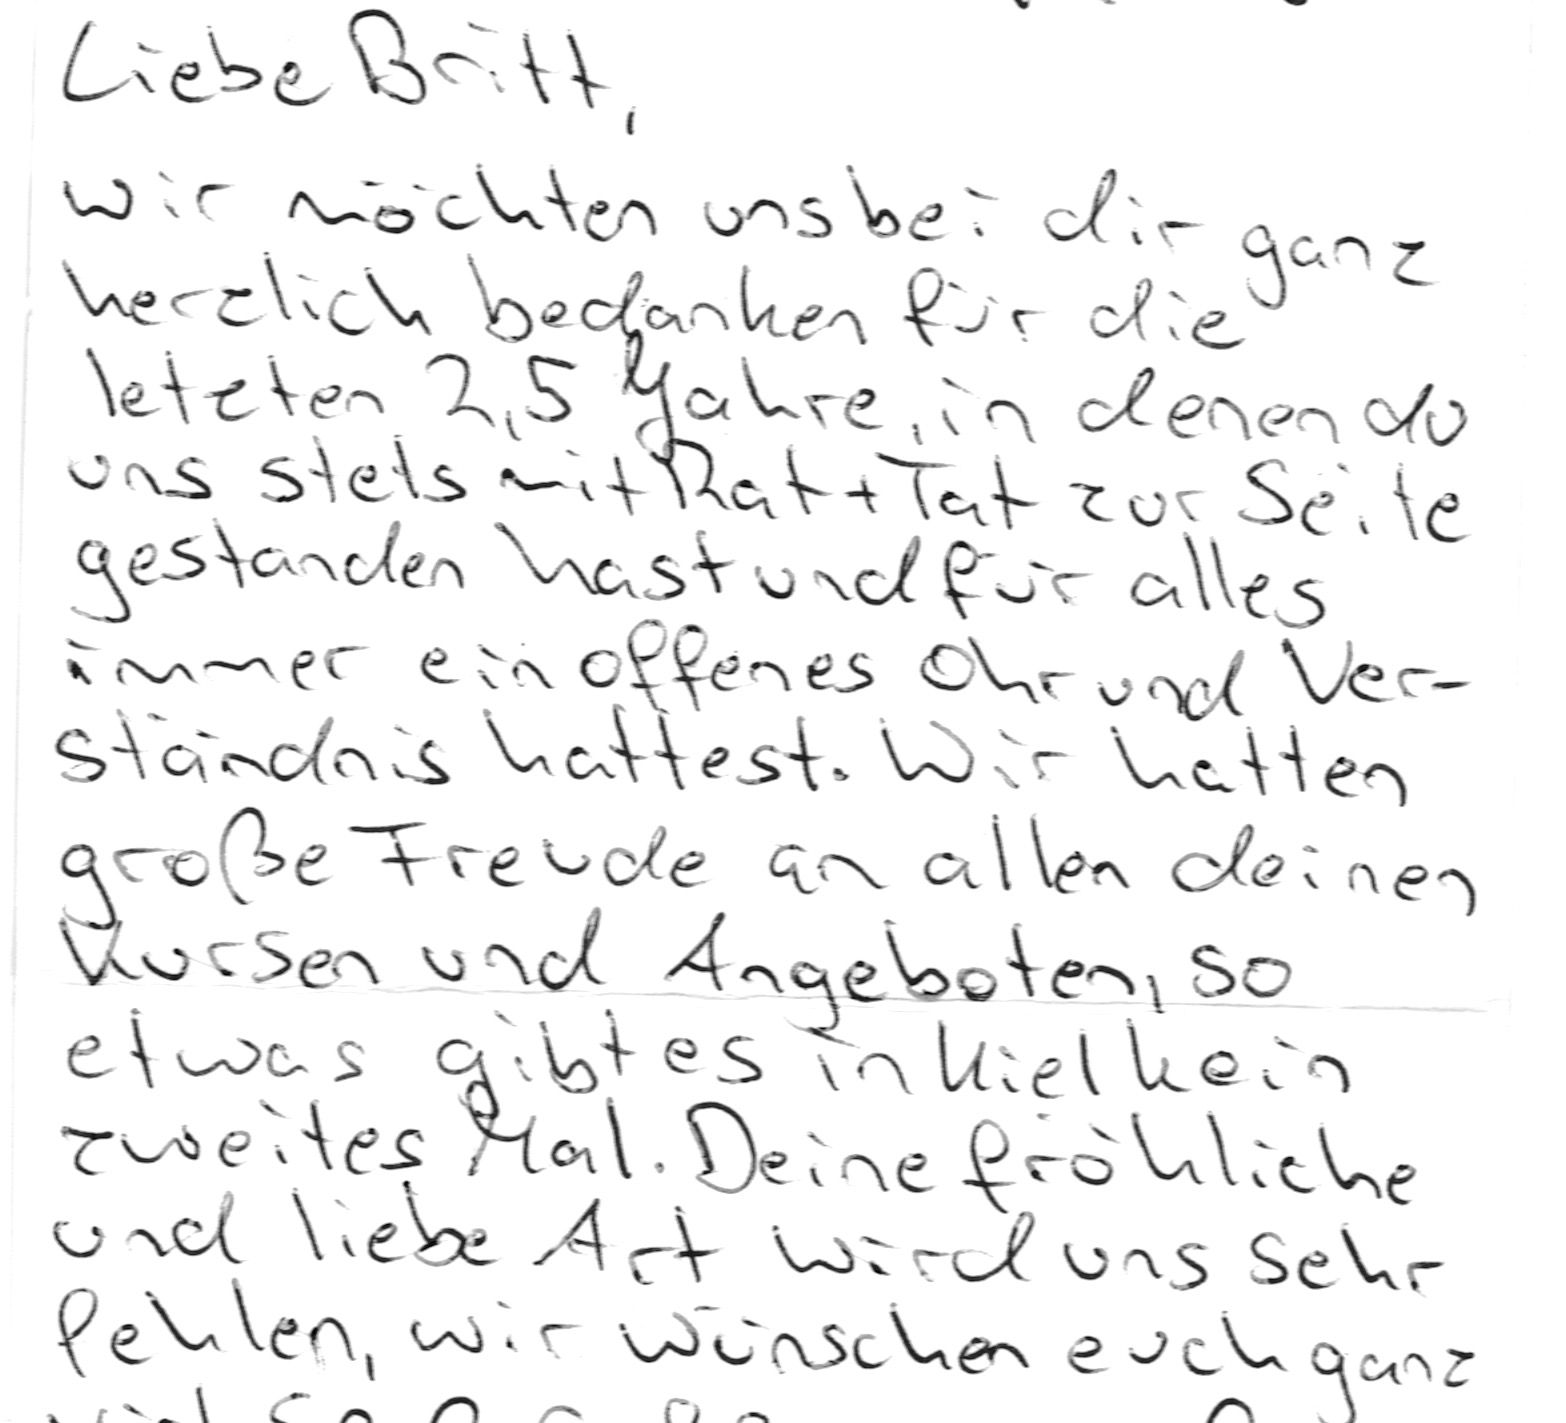 Liebe Britt,
wir möchten uns bei dir ganz
herzlich bedanken für die
letzten 2,5 Jahre, in denen du
uns stets mit Rat + Tat zur Seite
gestanden hast und für alles
immer ein offenes Ohr und Ver-
ständnis hattest. Wir hatten
große Freude an allen deinen
Kursen und Angeboten, so
etwas gibt es in Kiel kein
zweites Mal. Deine fröhliche
und liebe Art wird uns sehr
fehlen, wir wünschen euch ganz